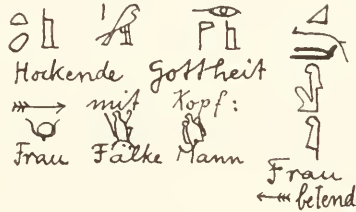 Hockende Gottheit
mit Kopf:
Frau Fälke Mann
Frau
betend